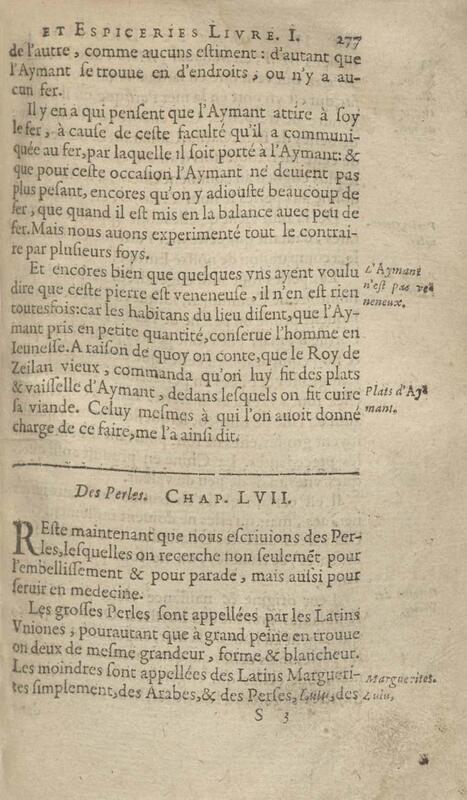 ET ESPICERIES LIVRE. I. 277
de l'autre, comme aucuns estiment: d'autant que
l'Aymant se trouue en d'endroits, ou n'y a au-
cun fer.
Il y en a qui pensent que l'Aymant attire à soy
le fer, à cause de ceste faculté qu'il a communi-
quée au fer, par laquelle il soit porté à l'Aymant: &
que pour ceste occasion l'Aymant ne deuient pas
plus pesant, encores qu'on y adiouste beaucoup de
fer, que quand il est mis en la balance auec peu de
fer. Mais nous auons experimenté tout le contrai-
re par plusieurs foys.
Et encores bien que quelques vns ayent voulu
dire que ceste pierre est veneneuse, il n'en est rien
toutesfois: car les habitans du lieu disent, que l'Ay-
mant pris en petite quantité, conserue l'homme en
Ieunesse. A raison de quoy on conte, que le Roy de
Zeilan vieux, commanda qu'on luy fit des plats
& vaisselle d'Aymant, dedans lesquels on fit cuire
sa viande. Celuy mesmes à qui l'on auoit donné
charge de ce faire, me l'a ainsi dit.
L'Aymant
n'est pas ve
neneux.
Plats d'Ay
mant.
Des Perles. CHAP. LVII.
REste maintenant que nous escriuions des Per-
les, lesquelles on recerche non seulemēt pour
l'embellissement & pour parade, mais aussi pour
seruir en medecine.
Les grosses Perles sont appellées par les Latins
Vniones, pourautant que à grand peine en trouue
on deux de mesme grandeur, forme & blancheur.
Les moindres sont appellées des Latins Margueri-
tes simplement, des Arabes, & des Perses, Lulu, des
Marguerites.
Lulu,
S 3